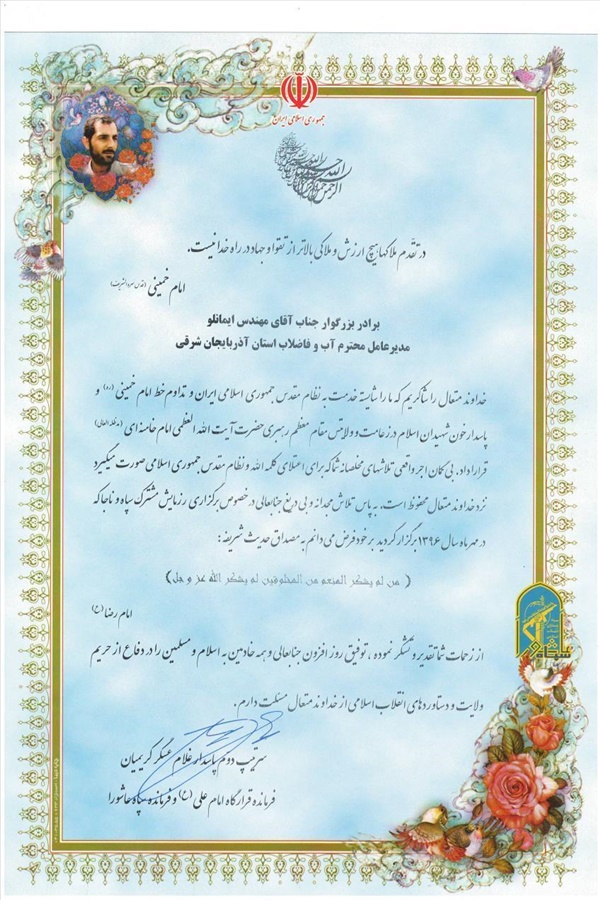 جمهوری اسلامی ایران
در تقدم ملاکها هیچ ارزش و ملاکی بالاتر از تقوا و جهاد در راه خدا نیست.
امام خمینی
برادر بزرگوار جناب آقای مهندس ایمانلو
مدیرعامل محترم آب و فاضلاب استان آذربایجان شرقی
خداوند متعال را شاکریم که ما را شایسته خدمت به نظام مقدس جمهوری اسلامی ایران و تداوم خط امام خمینی (ره) و
پاسدار خون شهیدان اسلام در زعامت و ولاتمس مقام معظم رهبری حضرت آیت الله العظمی امام خامنه ای (مدظله العالی)
قرار داد. بی گمان اجر واقعی تلاشهای مخلصانه شما که برای اعتلای کلمه الله و نظام مقدس جمهوری اسلامی صورت میگیرد
نزد خداوند متعال محفوظ است. به پاس تلاش مجدانه و بی دریغ جنابعالی در خصوص برگزاری رزمایش مشترک سپاه و ناجا که
در مهر ماه سال ۱۳۹۶ برگزار گردید بر خود فرض می دانم به مصداق حدیث شریفه :
( من لم یشکر المنعم من المخلوقین لم یشکر الله عز و جل )
امام رضا (ع)
از زحمات شما تقدیر و تشکر نموده ، توفیق روز افزون جنابعالی و همه خادمین به اسلام و مسلمین را در دفاع از حریم
ولایت و دستاوردهای انقلاب اسلامی از خداوند متعال مسئلت دارم .
سرتیپ دوم پاسدار غلام عسگر کریمیان
فرمانده قرارگاه امام علی (ع) و فرمانده سپاه عاشورا